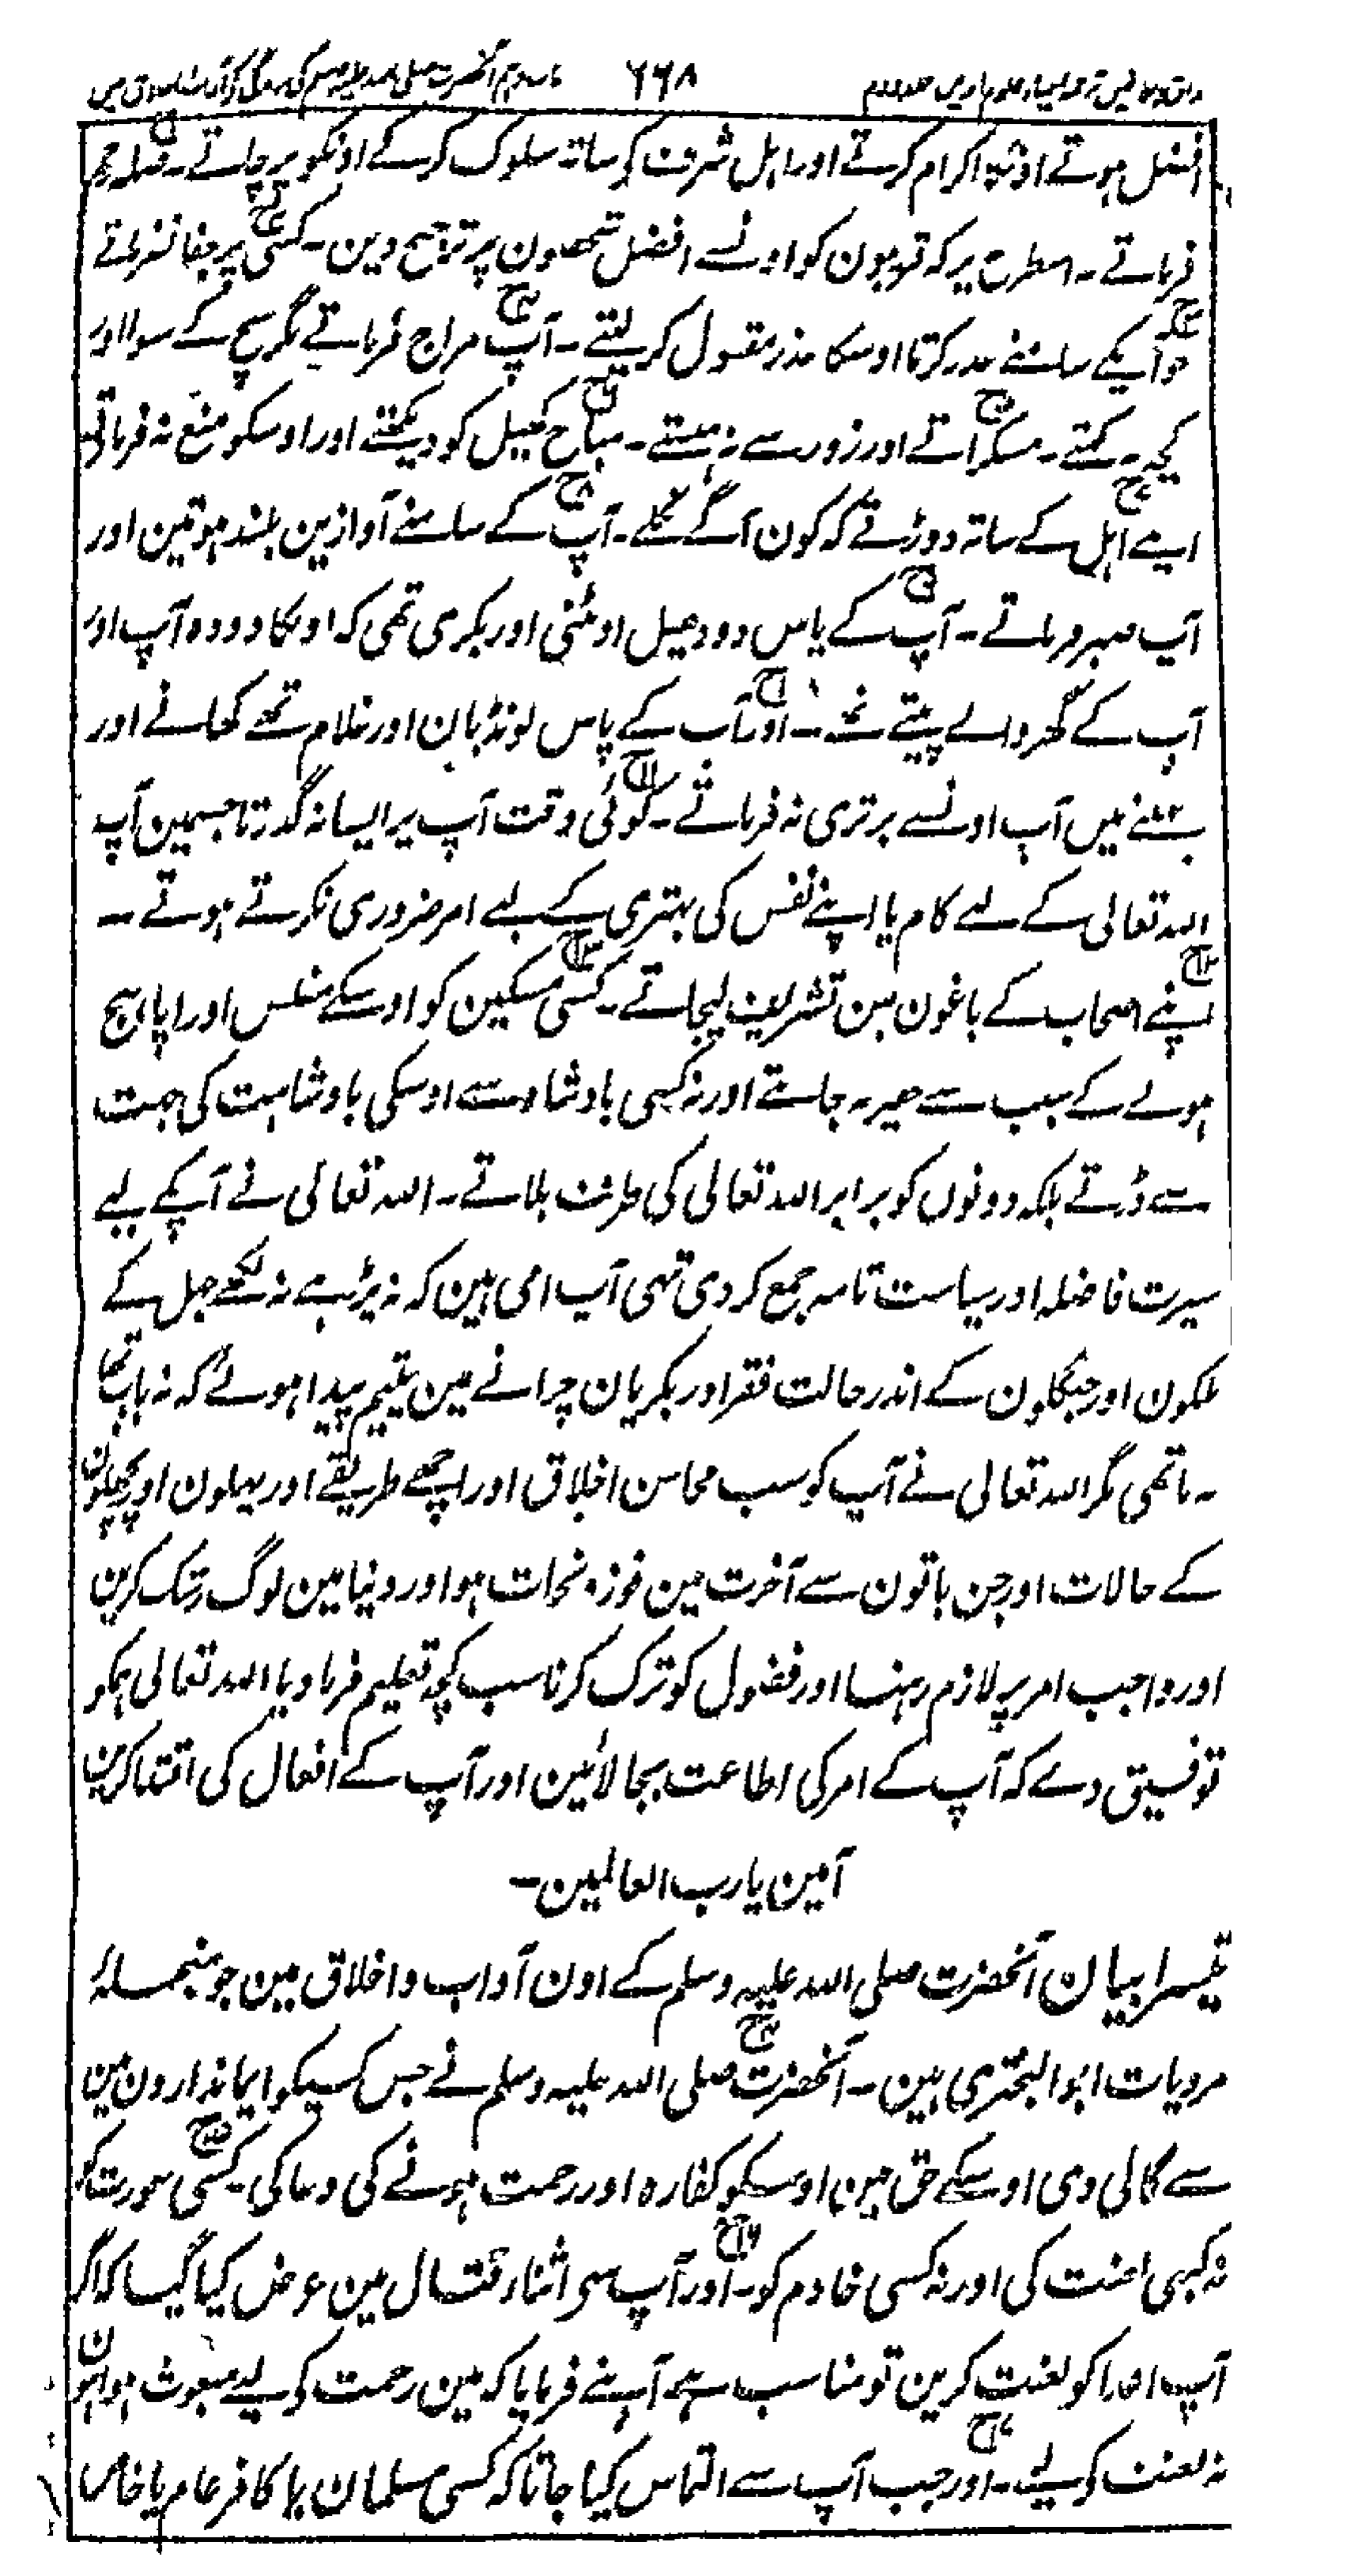 ۶۶۸
افضل ہوتے اونکا اکرام کرتے اور اہل شرف کے ساتہ سلوک کرکے اونکو پرچاتے۔ صلہ رحم
فرماتے۔ اسطرح پر کہ قریبون کو اونسے افضل شخصون پر ترجیح دین۔ کسی پر جفا نفرماتے
جو آپکے سامنے عذر کرتا اوسکا عذر مقبول کرلیتے۔ آپ مزاح فرماتے مگر سچ کے سوا اور
کچہ نہ کہتے۔ مسکراتے اور زور سے نہ ہنستے۔ مباح کھیل کو دیکھتے اور اوسکو منع نہ فرماتے
اپنے اہل کے ساتہ دوڑتے کہ کون آگے نکلے۔ آپ کے سامنے آوازین بلند ہوتین اور
آپ صبر فرماتے۔ آپ کے پاس دودھیل اونٹنی اور بکری تھی کہ اونکا دودہ آپ اور
آپ کے گھر والے پیتے تھے۔ اور آپ کے پاس لونڈیان اور غلام تھے کھانے اور
پہننے میں آپ اونسے برتری نہ فرماتے۔ کوئی وقت آپ پر ایسا نہ گذرتا جسمین آپ
اللہ تعالی کے لیے کام یا اپنے نفس کی بہتری کے لیے امر ضروری نکرتے ہوتے۔
اپنے اصحاب کے باغون مین تشریف لیجاتے۔ کسی مسکین کو اوسکے مفلس اور اپاہج
ہونے کے سبب سے حقیر نہ جانتے اور نہ کسی بادشاہ سے اوسکی بادشاہت کی جہت
سے ڈرتے بلکہ دونوں کو برابر اللہ تعالی کی طرف بلاتے۔ اللہ تعالی نے آپکے لیے
سیرت فاضلہ اور سیاست تامہ جمع کردی تھی آپ امی ہین کہ نہ پڑہے نہ لکھے جہل کے
ملکون اور جنگلون کے اندر حالت فقر اور بکریان چرانے مین یتیم پیدا ہوئے کہ نہ باپ تھا
نہ ما تھی مگر اللہ تعالی نے آپ کو سب محاسن اخلاق اور اچھے طریقے اور پہلون اور پچھلون
کے حالات اور جن باتون سے آخرت مین فوز و نجات ہو اور دنیا مین لوگ رشک کرین
اور واجب امر پر لازم رہنا اور فضول کو ترک کرنا سب کچہ تعلیم فرما دیا اللہ تعالی ہمکو
توفیق دے کہ آپ کے امر کی اطاعت بجا لائین اور آپ کے افعال کی اقتدا کرین
آمین یا رب العالمین۔
تیسرا بیان آنحضرت صلی اللہ علیہ وسلم کے اون آداب و اخلاق مین جو منجملہ
مرویات ابو البختری ہین۔ آنحضرت صلی اللہ علیہ وسلم نے جس کسیکو ایماندارون مین
سے گالی دی اوسکے حق مین اوسکو کفارہ اور رحمت ہونے کی دعا کی۔ کسی عورت کو
نہ کبہی لعنت کی اور نہ کسی خادم کو۔ اور آپ سے اثناء قتال مین عرض کیا گیا کہ اگر
آپ اعدا کو لعنت کرین تو مناسب ہے آپ نے فرمایا کہ مین رحمت کو لیے مبعوث ہوا ہون
نہ لعنت کو لیے۔ اور جب آپ سے التماس کیا جاتا کہ کسی مسلمان یا کافر عام یا خاص